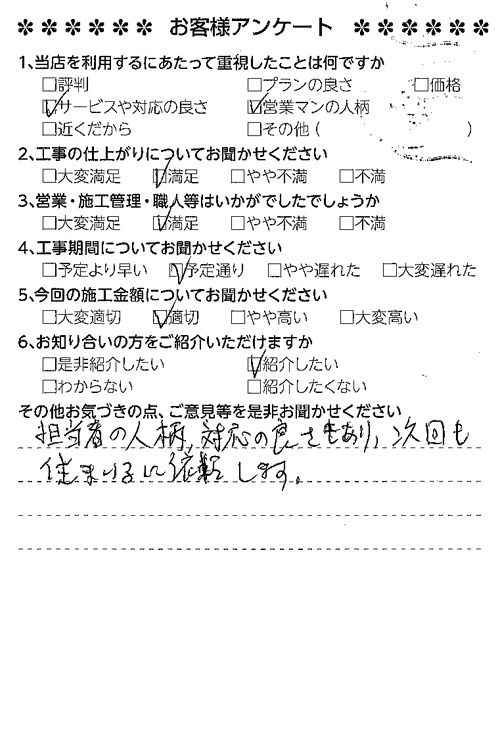 ✽✽✽✽✽✽ お客様アンケート ✽✽✽✽✽✽
1、当店を利用するにあたって重視したことは何ですか
□評判 □プランの良さ □価格
☑サービスや対応の良さ ☑営業マンの人柄
□近くだから □その他 ( )
2、工事の仕上がりについてお聞かせください
□大変満足 ☑満足 □やや不満 □不満
3、営業・施工管理・職人等はいかがでしたでしょうか
□大変満足 ☑満足 □やや不満 □不満
4、工事期間についてお聞かせください
□予定より早い ☑予定通り □やや遅れた □大変遅れた
5、今回の施工金額についてお聞かせください
□大変適切 ☑適切 □やや高い □大変高い
6、お知り合いの方をご紹介いただけますか
□是非紹介したい ☑紹介したい
□わからない □紹介したくない
その他お気づきの点、ご意見等を是非お聞かせください
担当者の人柄,対応の良さもあり、次回も
住まいるに依頼します。